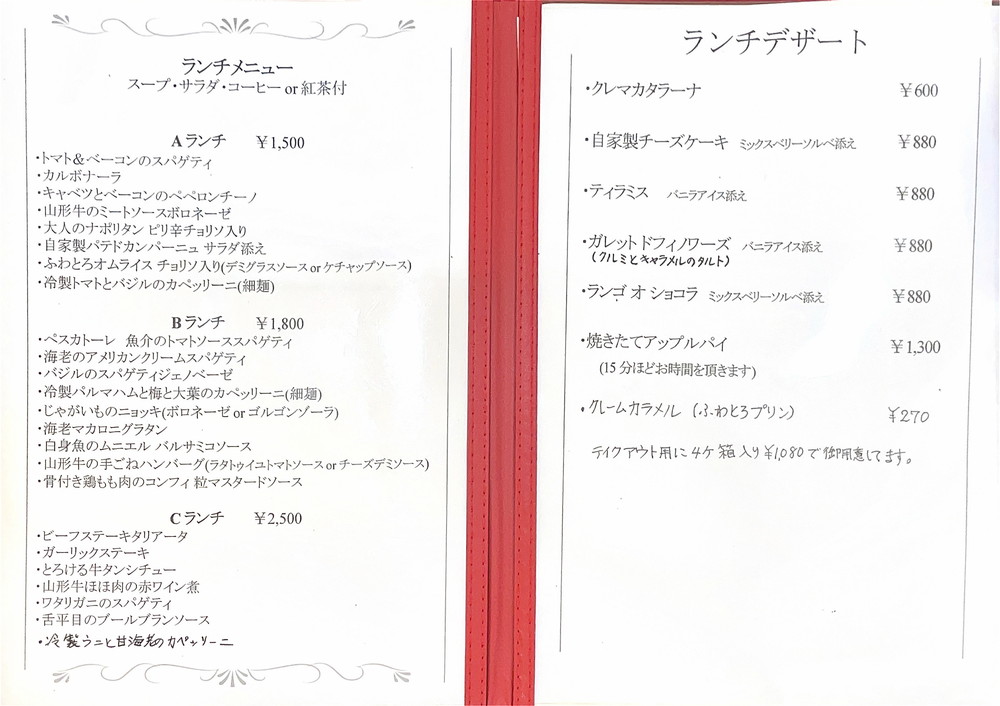 ランチメニュー
スープ・サラダ・コーヒー or 紅茶付
A ランチ ￥1,500
・トマト＆ベーコンのスパゲティ
・カルボナーラ
・キャベツとベーコンのペペロンチーノ
・山形牛のミートソースボロネーゼ
・大人のナポリタン ピリ辛チョリソ入り
・自家製パテドカンパーニュ サラダ添え
・ふわとろオムライス チョリソ入り(デミグラスソース or ケチャップソース)
・冷製トマトとバジルのカペッリーニ(細麺)
B ランチ ￥1,800
・ペスカトーレ 魚介のトマトソーススパゲティ
・海老のアメリカンクリームスパゲティ
・バジルのスパゲティジェノベーゼ
・冷製パルマハムと梅と大葉のカペッリーニ(細麺)
・じゃがいものニョッキ(ボロネーゼ or ゴルゴンゾーラ)
・海老マカロニグラタン
・白身魚のムニエル バルサミコソース
・山形牛の手ごねハンバーグ(ラタトゥイユトマトソース or チーズデミソース)
・骨付き鶏もも肉のコンフィ 粒マスタードソース
C ランチ ￥2,500
・ビーフステーキタリアータ
・ガーリックステーキ
・とろける牛タンシチュー
・山形牛ほほ肉の赤ワイン煮
・ワタリガニのスパゲティ
・舌平目のブールブランソース
・冷製うにと甘海老のカペッリーニ
ランチデザート
・クレマカタラーナ ￥600
・自家製チーズケーキ ミックスベリーソルベ添え ￥880
・ティラミス バニラアイス添え ￥880
・ガレットドフィノワーズ バニラアイス添え ￥880
(クルミとキャラメルのタルト)
・ランゴ オ ショコラ ミックスベリーソルベ添え ￥880
・焼きたてアップルパイ ￥1,300
(15 分ほどお時間を頂きます)
・クレームカラメル (ふわとろプリン) ￥270
テイクアウト用に 4ヶ箱入り ￥1,080で御用意してます。